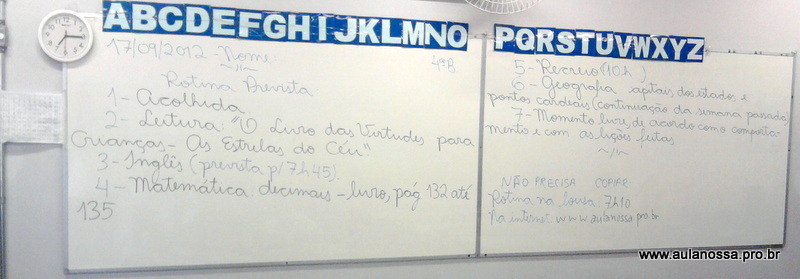 ABCDEFGHIJKLMNO
PQRSTUVWXYZ
17/09/2012 Nome:
4ºB
Rotina Prevista
1- Acolhida
2- Leitura: "O Livro das Virtudes para
Crianças - As Estrelas do Céu"
3- Inglês (prevista p/ 7h45).
4- Matemática: decimais - livro, pág 132 até
135
5- Recreio (10h)
6- Geografia capitais dos estados e
pontos cardeais (continuação da semana passada)
7- Momento livre, de acordo com o comporta-
mento e com as lições feitas
NÃO PRECISA COPIAR
Rotina na lousa: 7h10
Na internet: www.aulanossa.pro.br
www.aulanossa.pro.br